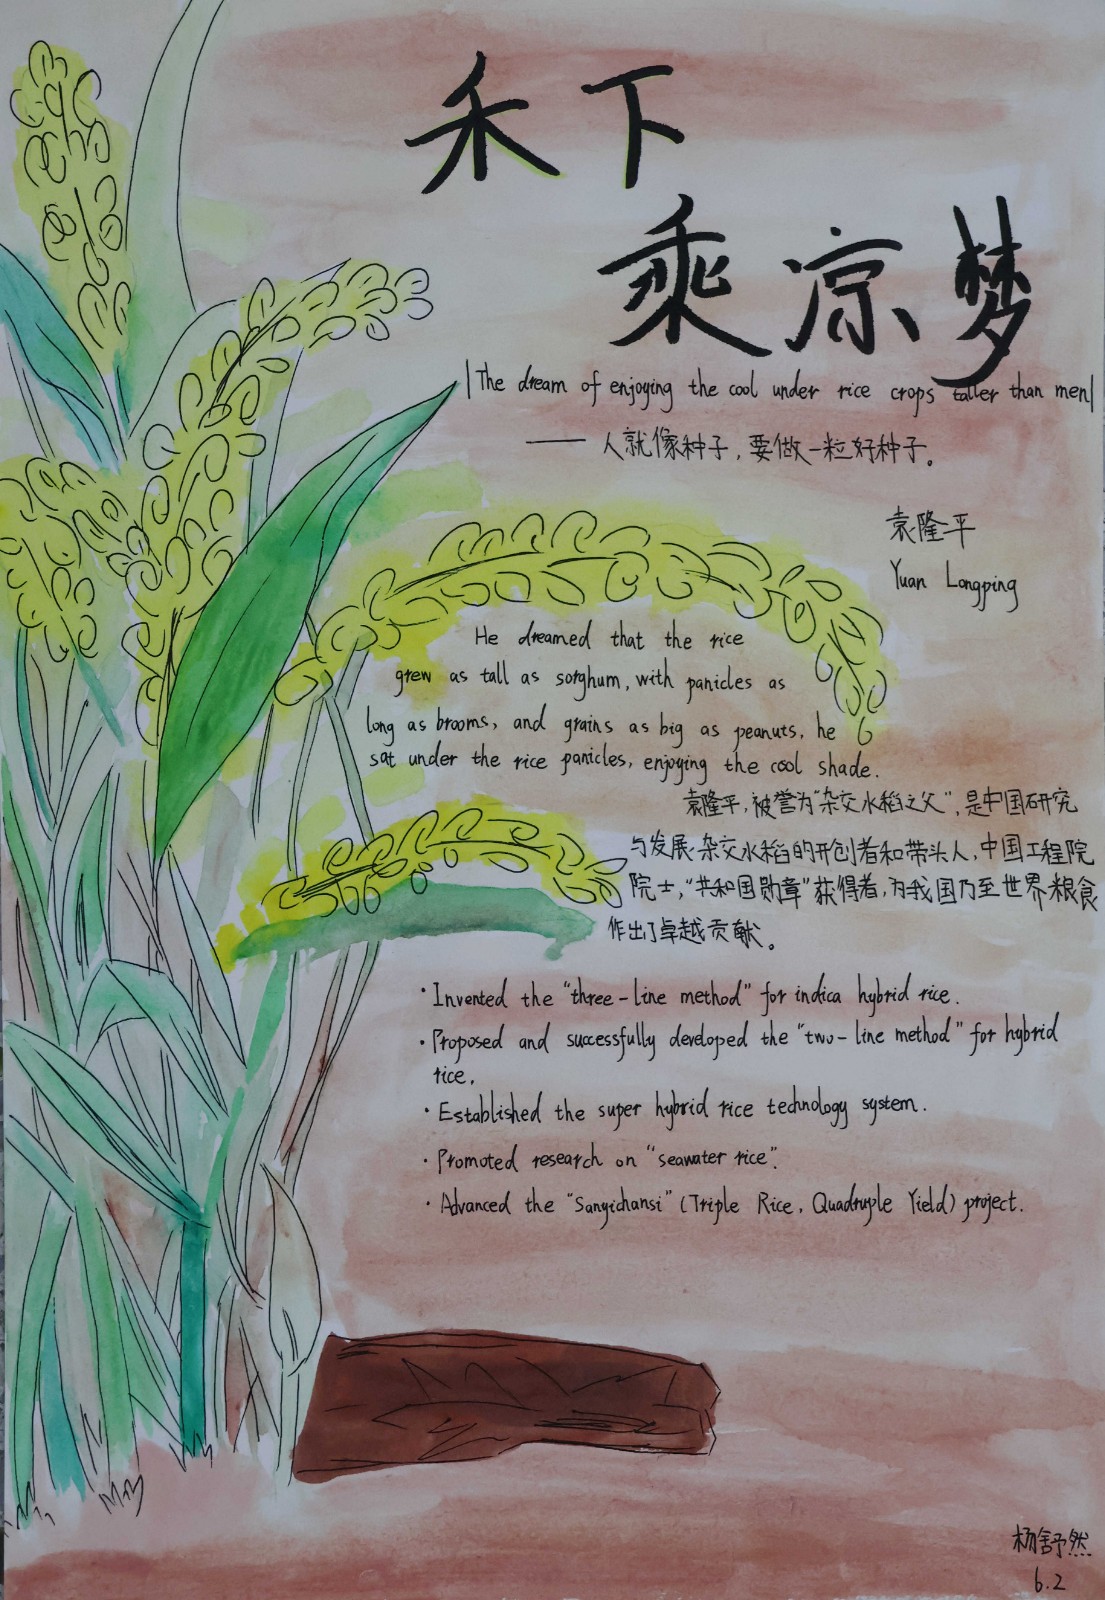 禾下
乘凉梦
|The dream of enjoying the cool under rice crops taller than men|
——人就像种子，要做一粒好种子。
袁隆平
Yuan Longping
He dreamed that the rice
grew as tall as sorghum, with panicles as
long as brooms, and grains as big as peanuts, he
sat under the rice panicles, enjoying the cool shade.
袁隆平，被誉为“杂交水稻之父”，是中国研究
与发展杂交水稻的开创者和带头人，中国工程院
院士，“共和国勋章”获得者，为我国乃至世界粮食
作出了卓越贡献。
·Invented the "three-line method" for indica hybrid rice.
·Proposed and successfully developed the "two-line method" for hybrid
rice.
·Established the super hybrid rice technology system.
·Promoted research on "seawater rice".
·Advanced the "Sanyichansi" (Triple Rice, Quadruple Yield) project.
杨舒然
6.2